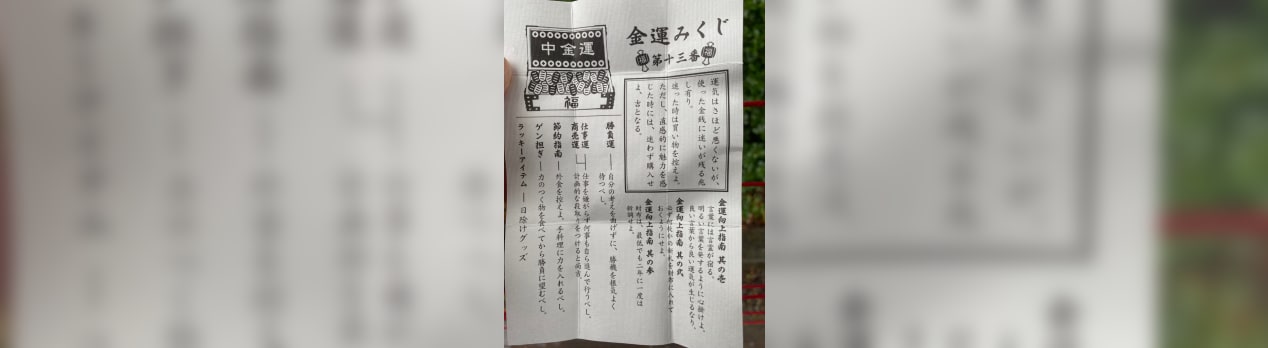 金運みくじ
福
第十三番
福
中金運
福
運気はさほど悪くないが、
使った金銭に迷いが残る兆
し有り。
迷った時は買い物を控えよ。
ただし、直感的に魅力を感
じた時には、迷わず購入せ
よ、吉となる。
金運向上指南 其の壱
言葉には言霊が宿る。
明るい言葉を発するように心掛けよ。
良い言葉から良い運気が生じるなり。
金運向上指南 其の弐
必ず何枚かの新札を財布に入れて
おくようにせよ。
金運向上指南 其の参
財布は、最低でも二年に一度は
新調せよ。
勝負運 ― 自分の考えを曲げずに、勝機を根気よく
待つべし。
仕事運
商売運
仕事を嫌がらず何事も自ら進んで行うべし。
計画的な段取りをつけると尚吉。
節約指南 ― 外食を控えよ。手料理に力を入れるべし。
ゲン担ぎ ― 力のつく物を食べてから勝負に望むべし。
ラッキーアイテム ― 日除けグッズ